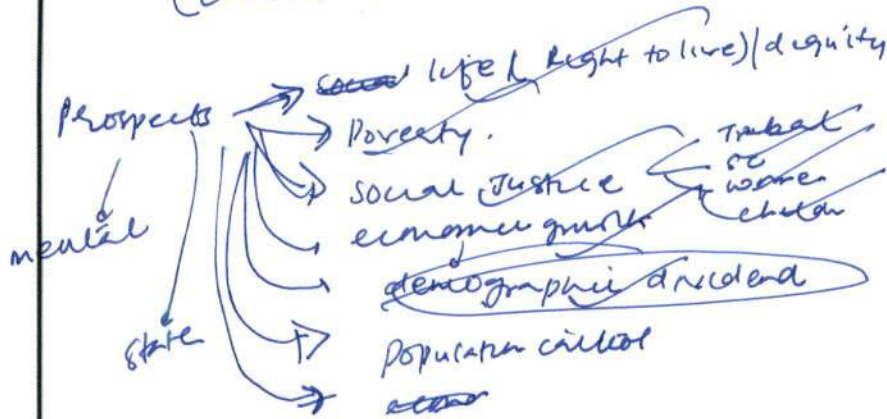 Prospects
life (Right to live)/dignity
Poverty.
Social Justice
Tribal
SC
women
economic growth
demographic dividend
population control
mental
State